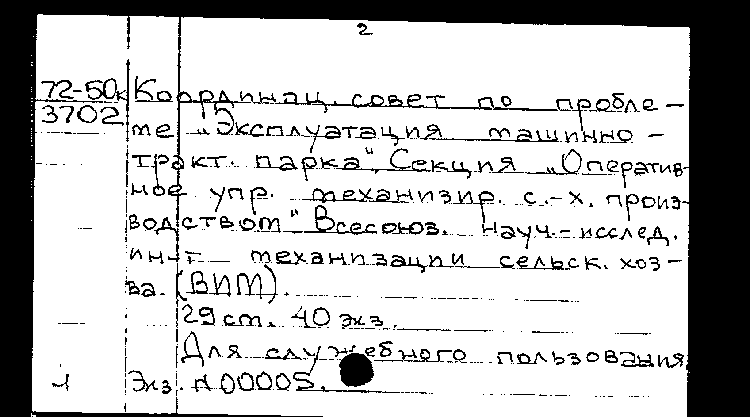 2
72-50к Координац. совет по пробле-
3702
ме „Эксплуатация машинно-
тракт. парка". Секция „Оператив-
ное упр. механизир. с.-х. произ-
водством" Всесоюз. науч.-исслед.
ин-т механизации сельск. хоз-
ва. (ВИМ).
29 ст. 40 экз.
Для служебного пользования
1 Экз. N 00005.